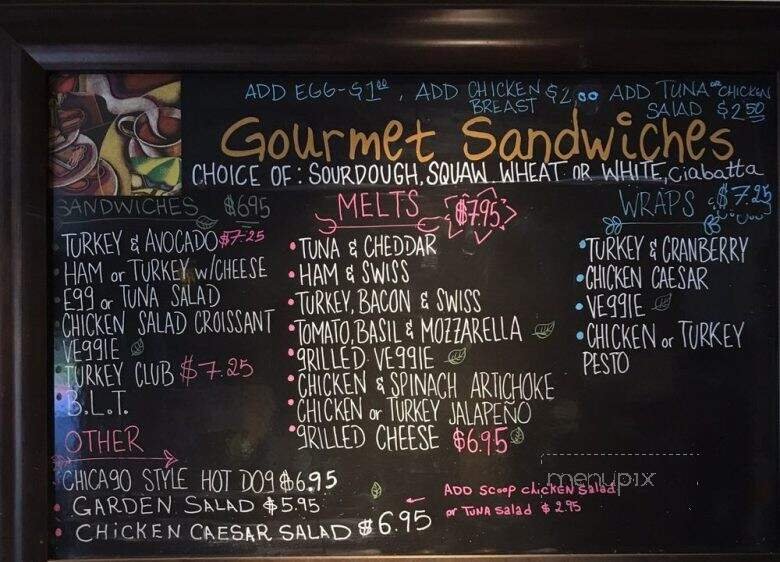 ADD EGG - $1.00, ADD CHICKEN BREAST $2.00 ADD TUNA OR CHICKEN SALAD $2.50
Gourmet Sandwiches
CHOICE OF: SOURDOUGH, SQUAW WHEAT OR WHITE, Ciabatta
SANDWICHES $6.95
TURKEY & AVOCADO $7.25
HAM or TURKEY w/CHEESE
Egg or TUNA SALAD
CHICKEN SALAD CROISSANT
VEggIE
TURKEY CLUB $7.25
B.L.T.
MELTS $7.95
TUNA & CHEDDAR
HAM & SWISS
TURKEY, BACON & SWISS
TOMATO, BASIL & MOZZARELLA
gRILLED VEggIE
CHICKEN & SPINACH ARTICHOKE
CHICKEN or TURKEY JALAPEÑO
gRILLED CHEESE $6.95
WRAPS $7.25
TURKEY & CRANBERRY
CHICKEN CAESAR
VEggIE
CHICKEN or TURKEY
PESTO
OTHER
CHICAgO STYLE HOT DOg $6.95
GARDEN SALAD $5.95
CHICKEN CAESAR SALAD $6.95
ADD SCOOP CHICKEN Salad
or TUNA Salad $2.95
menupix